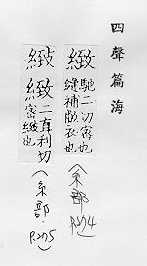 四聲篇海
緻馳二切密也
縫補敝衣也
(糸部 P.274)
緻緻二直利切
密緻也
(糸部 P.275)